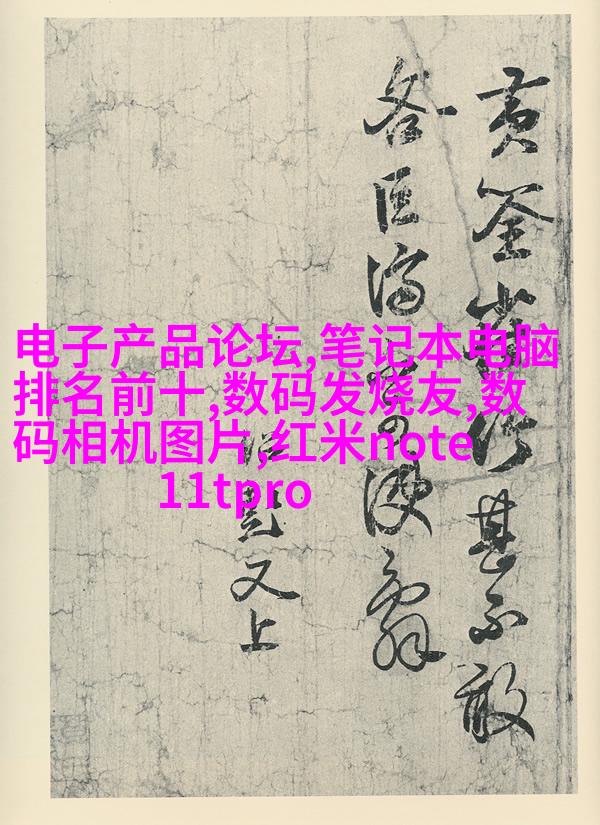 电子产品论坛,笔记本电脑
排名前十,数码发烧友,数
码相机图片,红米note
11tpro
黄筌 甚不敢
吝
又上